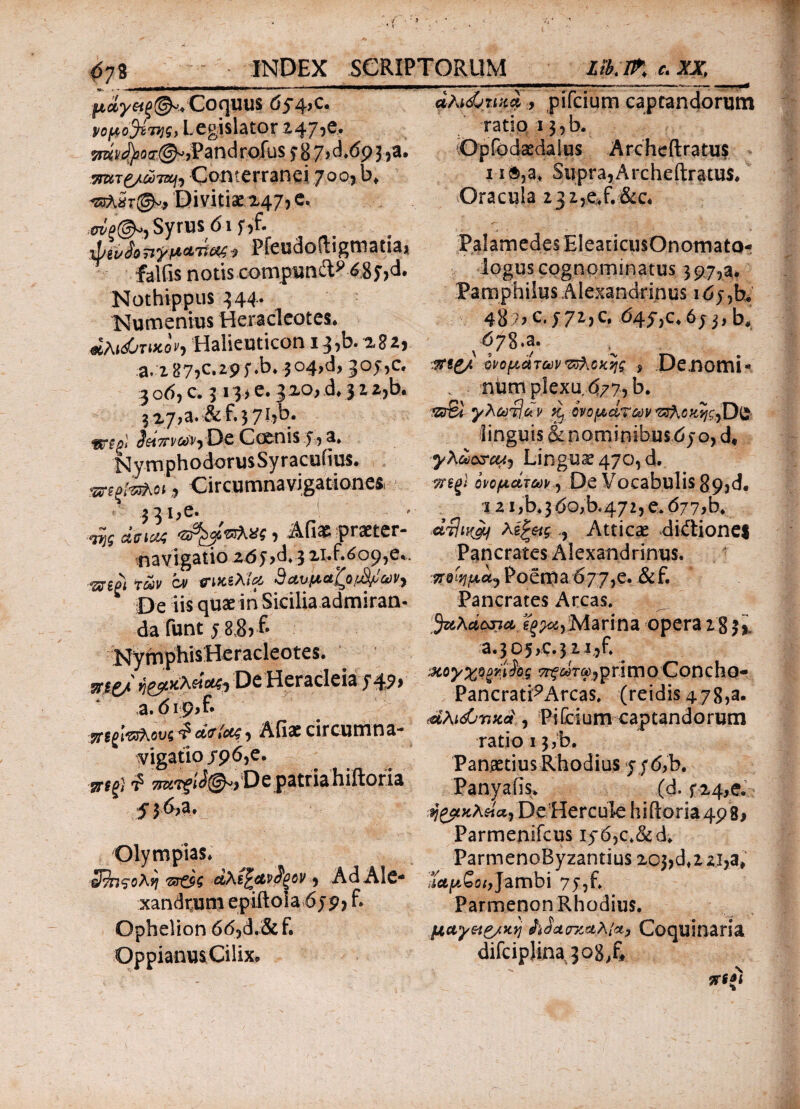 678 INDEX SCRIPTORUM Lib. IV. c. XX.
μάγειρ@. Coquus 654,c.
νομοθέτης, Legislator 247,e.
πάνδροσ@, Pandrofus 587,d.693,a.
πατριῶται, Conterranei 700,b.
πλᾶτ@, Divitiæ 247,e.
σύρ@, Syrus 615,f.
ψευδοστιγματίας, Pfeudoftigmatias
falfis notis compunct9 685,d.
Nothippus 344.
Numenius Heracleotes.
ἁλιευτικὸν, Halieuticon 13,b. 282,
a. 287,c.295.b. 304,d, 305,c.
306, c. 313, e. 320, d. 322,b.
327,a. & f. 371,b.
περὶ δείπνων, De Cœnis 5, a.
NymphodorusSyracufius.
περίπλοι, Circumnavigationes
331,e.
τῆς ἀσίας παράπλȣς, Afiæ præter-
navigatio 265,d. 321.f.609,e..
περὶ τῶν ἐν σικελίᾳ θαυμαζομένων,
De iis quæ in Sicilia admiran-
da funt 588, f.
NymphisHeracleotes.
περὶ ἡρακλείας, De Heracleia 549,
a. 619,f.
περίπλους τ ἀσίας, Afiæ circumna-
vigatio 596,e.
περὶ τ πατρίδ@, De patria hiftoria
536,a.
Olympias.
ἐπιστολὴ πρὸς ἀλέξανδρον, Ad Ale-
xandrum epiftola 659, f.
Ophelion 66,d.& f.
OppianusCilix.
ἁλιευτικὰ, pifcium captandorum
ratio 13,b.
Opfodædalus Archeftratus
116,a. Supra, Archeftratus.
Oracula 232,e.f. &c.
Palamedes EleaticusOnomato-
logus cognominatus 397,a.
Pamphilus Alexandrinus 165,b.
487, c. 572, c. 645,c. 653, b.
678.a.
περὶ ὀνομάτων πλοκῆς, De nomi-
num plexu. 677, b.
περὶ γλωττῶν καὶ ὀνομάτων πλοκῆς, De
linguis & nominibus 650, d.
γλῶσσαι, Linguæ 470, d.
περὶ ὀνομάτων, De Vocabulis 893d.
121,b.360,b.472,e.677,b.
ἀττικαὶ λέξεις, Atticæ dictiones
Pancrates Alexandrinus.
ποίημα, Poëma 677,e. & f.
Pancrates Arcas.
θαλάσσια ἔργα, Marina opera 283,
a.305,c.321,f.
κογχορηίδος πρώτῳ, primo Concho-
Pancrati9Arcas. (reidis 478,a.
ἁλιευτικὰ, Pifcium captandorum
ratio 13,b.
Panætius Rhodius 556,b.
Panyafis. (d. 524,e.
ἡράκλεια, De Hercule hiftoria 498,
Parmenifcus 156,c.& d.
ParmenoByzantius 203,d.221,a,
ἴαμβοι, Jambi 75,f.
Parmenon Rhodius.
μαγειρικὴ διδασκαλία, Coquinaria
difciplina 308,f.
περὶ